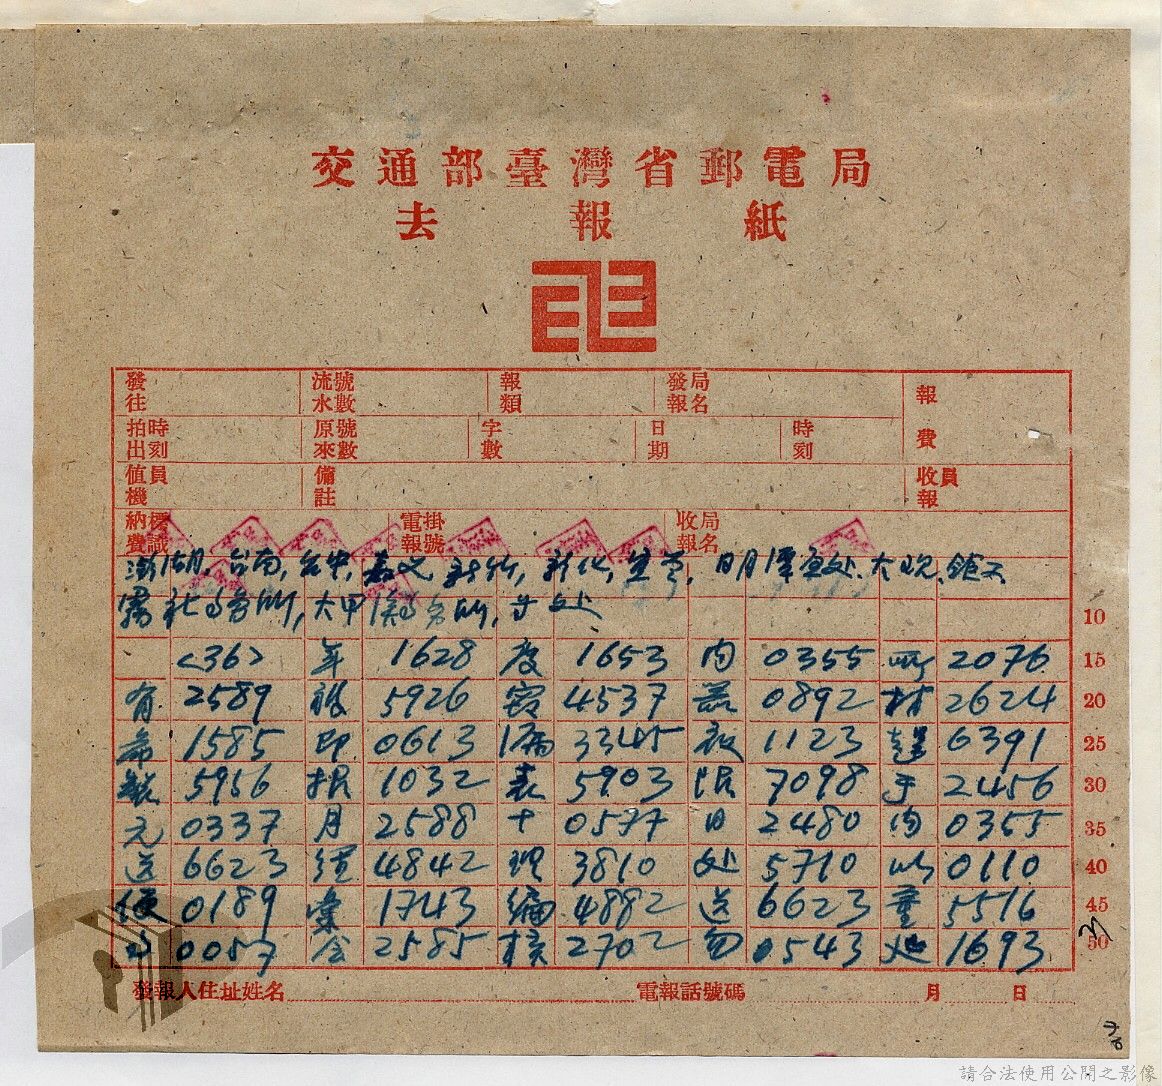 交通部臺灣省郵電局
去報紙
發往 流水號數 報類 發報局名 報費
拍出時刻 原來號數 字數 日期 時刻
值機員 備註 收報員
納費標識 電報掛號 收報局名
澎湖, 台南, 台中, 嘉义, 新竹, 新化, 日月潭
所, 大甲 所, 处
10
<36> 年 1628 度 1653 內 0355 所 2076 15
有 2589 報 5926 4537 器 0892 材 2624 20
希 1585 即 0613 1123 趕 6391 25
5956 報 1032 表 5903 限 7098 于 2456 30
元 0337 月 2588 十 0577 日 2480 內 0355 35
送 6623 經 4842 理 3810 处 5710 以 0110 40
便 0189 彙 1743 編 4882 送 6623 董 5516 45
0057 会 2585 核 2702 勿 0543 延 1693 50
發報人住址姓名 電報話號碼 月 日
請合法使用公開之影像